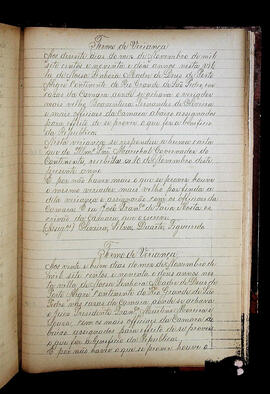 Termo de Veriança
Aos desoito dias do mes de Novembro de mil
sete centos e noventa e dous annos nesta vil-
la de Nossa Senhora Madre de Deus de Porto
Alegre Continente do Rio Grande de São Pedro, em
casas da Camara onde se achava o veriador
mais velho Fernandes de Oliveira
e mais officiaes da Camara abaixo assignados
para effeito de se prover o que fora a beneficio
da Republica.
Nesta veriança se respondeu a huma carta
que do Marechal Governador do
Continente, recebida a 10 de Novembro deste
presente anno.
E por não haver mais o que se prover houve
o mesmo veriador mais velho por finda a
dita veriança e assignarão com os officiaes da
Camara. E eu José Fran.co de Costa es-
crivão da Camara que o escrevi.
Oliveira, Silva, Duarte, Figueiredo
Termo de Veriança
Aos vinte e hum dias do mes de Novembro de
mil sete centos e noventa e dous annos nes-
ta villa de Nossa Senhora Madre de Deus de
Porto Alegre Continente do Rio Grande de São
Pedro nas casas da Camara, onde se achava
o Juiz Presidente Fran.co
com os mais officiaes da Camara a-
baixo assignados para effeito de se prover
o que for a beneficio da Republica.
E por não haver o que se prover houve o